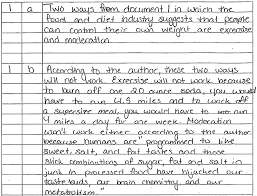 1 a Two ways from document 1 in which the
food and diet industry suggests that people
can control their own weight are exersise
and moderation.
1 b According to the author, these two ways
will not work. Exersise will not work because
to burn off one 20 ounce soda, you would
have to run 4.5 miles and to work off
a supersize meal, you would have to run
4 miles a day for one week. Moderation
won't work either according to the author
because humans are programmed to like
sweet, salt, and fat tastes and those
slick combinations of sugar, fat and salt in
junk in processed food have hijacked our
taste buds, our brain chemistry and our
metabolism."